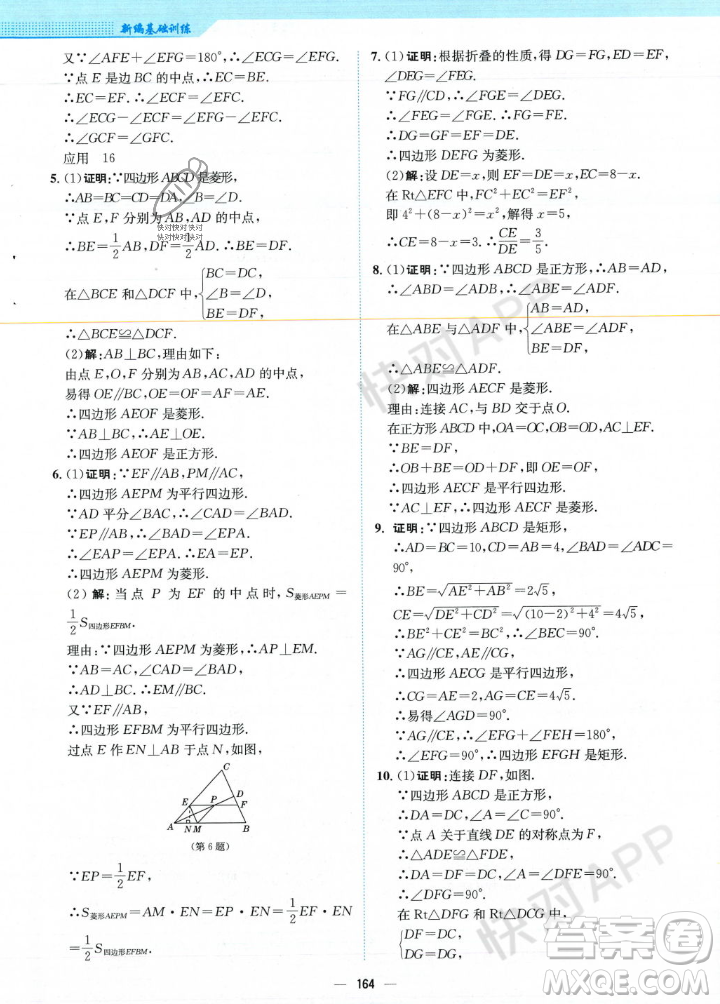 新编基础训练
又∵∠AFE+∠EFG=180°,∴∠ECF+
∠ECG=180°.
∵点E是边BC的中点,∴EB=EC.
∴EC=EF.∴∠ECF=∠EFC.
∴∠ECG-∠ECF=∠EFG-∠EFC.
∴∠GCF=∠GFC.
应用 16
5. (1)证明:∵四边形ABCD是菱形,
∴AB=BC=CD=AD,∠B=∠D.
∵点E,F分别为AB,AD的中点,
∴BE=1/2AB,DF=1/2AD.∴BE=DF.
在△BCE和△DCF中,{BC=DC,
∠B=∠D,
BE=DF,
∴△BCE≌△DCF.
(2)解:AB⊥BC,理由如下:
由点E,O,F分别为AB,AC,AD的中点,
易得OE∥BC,OF∥CD,OE=OF.
∴四边形AEOF是菱形.
∵AB⊥BC,∴AE⊥OE.
∴四边形AEOF是正方形.
6. (1)证明:∵EF∥AB,PM∥AC,
∴四边形AEPM为平行四边形.
∵AD平分∠CAB,∴∠CAD=∠BAD.
∵EP∥AB,∴∠BAD=∠EPA.
∴∠EAP=∠EPA.∴EA=EP.
∴四边形AEPM为菱形.
(2)解:当点P为EF的中点时,S菱形AEPM=
1/2S四边形EFBM.
理由:∵四边形AEPM为菱形,∴AP⊥EM.
∵AB=AC,∠CAD=∠BAD,∴AD⊥BC.∴EM∥BC.
又∵EF∥AB,
∴四边形EFBM为平行四边形.
过点E作EN⊥AB于点N,如图.
C
E P D F
A N M B
(第6题)
∵EP=1/2EF,
∴S菱形AEPM=AM·EN=EP·EN=1/2EF·EN
=1/2S四边形EFBM.
7. (1)证明:根据折叠的性质,得DG=FG,ED=EF,
∠DEG=∠FEG.
∵FG∥CD,∴∠FGE=∠DEG.
∴∠FGE=∠FEG.∴FG=FE.
∴DG=GF=EF=DE.
∴四边形DEFG为菱形.
(2)解:设DE=x,则EF=DE=x,EC=8-x.
在Rt△EFC中,FC²+EC²=EF²,
即4²+(8-x)²=x²,解得x=5,
∴CE=8-x=3.∴CE/DE=3/5.
8. (1)证明:∵四边形ABCD是正方形,∴AB=AD.
∴∠ABD=∠ADB,∴∠ABE=∠ADF.
在△ABE与△ADF中,{AB=AD,
∠ABE=∠ADF,
BE=DF,
∴△ABE≌△ADF.
(2)解:四边形AECF是菱形.
理由:连接AC,与BD交于点O.
在正方形ABCD中,OA=OC,OB=OD,AC⊥EF.
∵BE=DF,
∴OB+BE=OD+DF,即OE=OF.
∴四边形AECF是平行四边形.
∵AC⊥EF,∴四边形AECF是菱形.
9. 证明:∵四边形ABCD是矩形,
∴AD=BC=10,AB=CD=4,∠BAD=∠ADC=
90°.
∴BE=√(AE²+AB²)=2√5,
CE=√(DE²+CD²)=√((10-2)²+4²)=4√5.
∴BE²+CE²=BC².∴∠BEC=90°.
∵AG∥CE,AE∥CG,
∴四边形AECG是平行四边形.
∴CG=AE=2.∴AG=CE=4√5.
∴易得∠AGD=90°.
∵AG∥CE,∴∠EFG=∠FEH=90°.
∴∠EFG=90°.∴四边形EFGH是矩形.
10. (1)证明:连接DF,如图.
∵四边形ABCD是正方形,
∴DA=DC,∠A=∠C=90°.
∵点A关于直线DE的对称点为F,
∴△ADE≌△FDE.
∴DA=DF=DC,∠DFE=∠A=90°.
∴∠DFG=90°.
在Rt△DFG和Rt△DCG中,
{DF=DC,
DG=DG,
164
快对APP
快对APP
答案圈
MXQE.COM